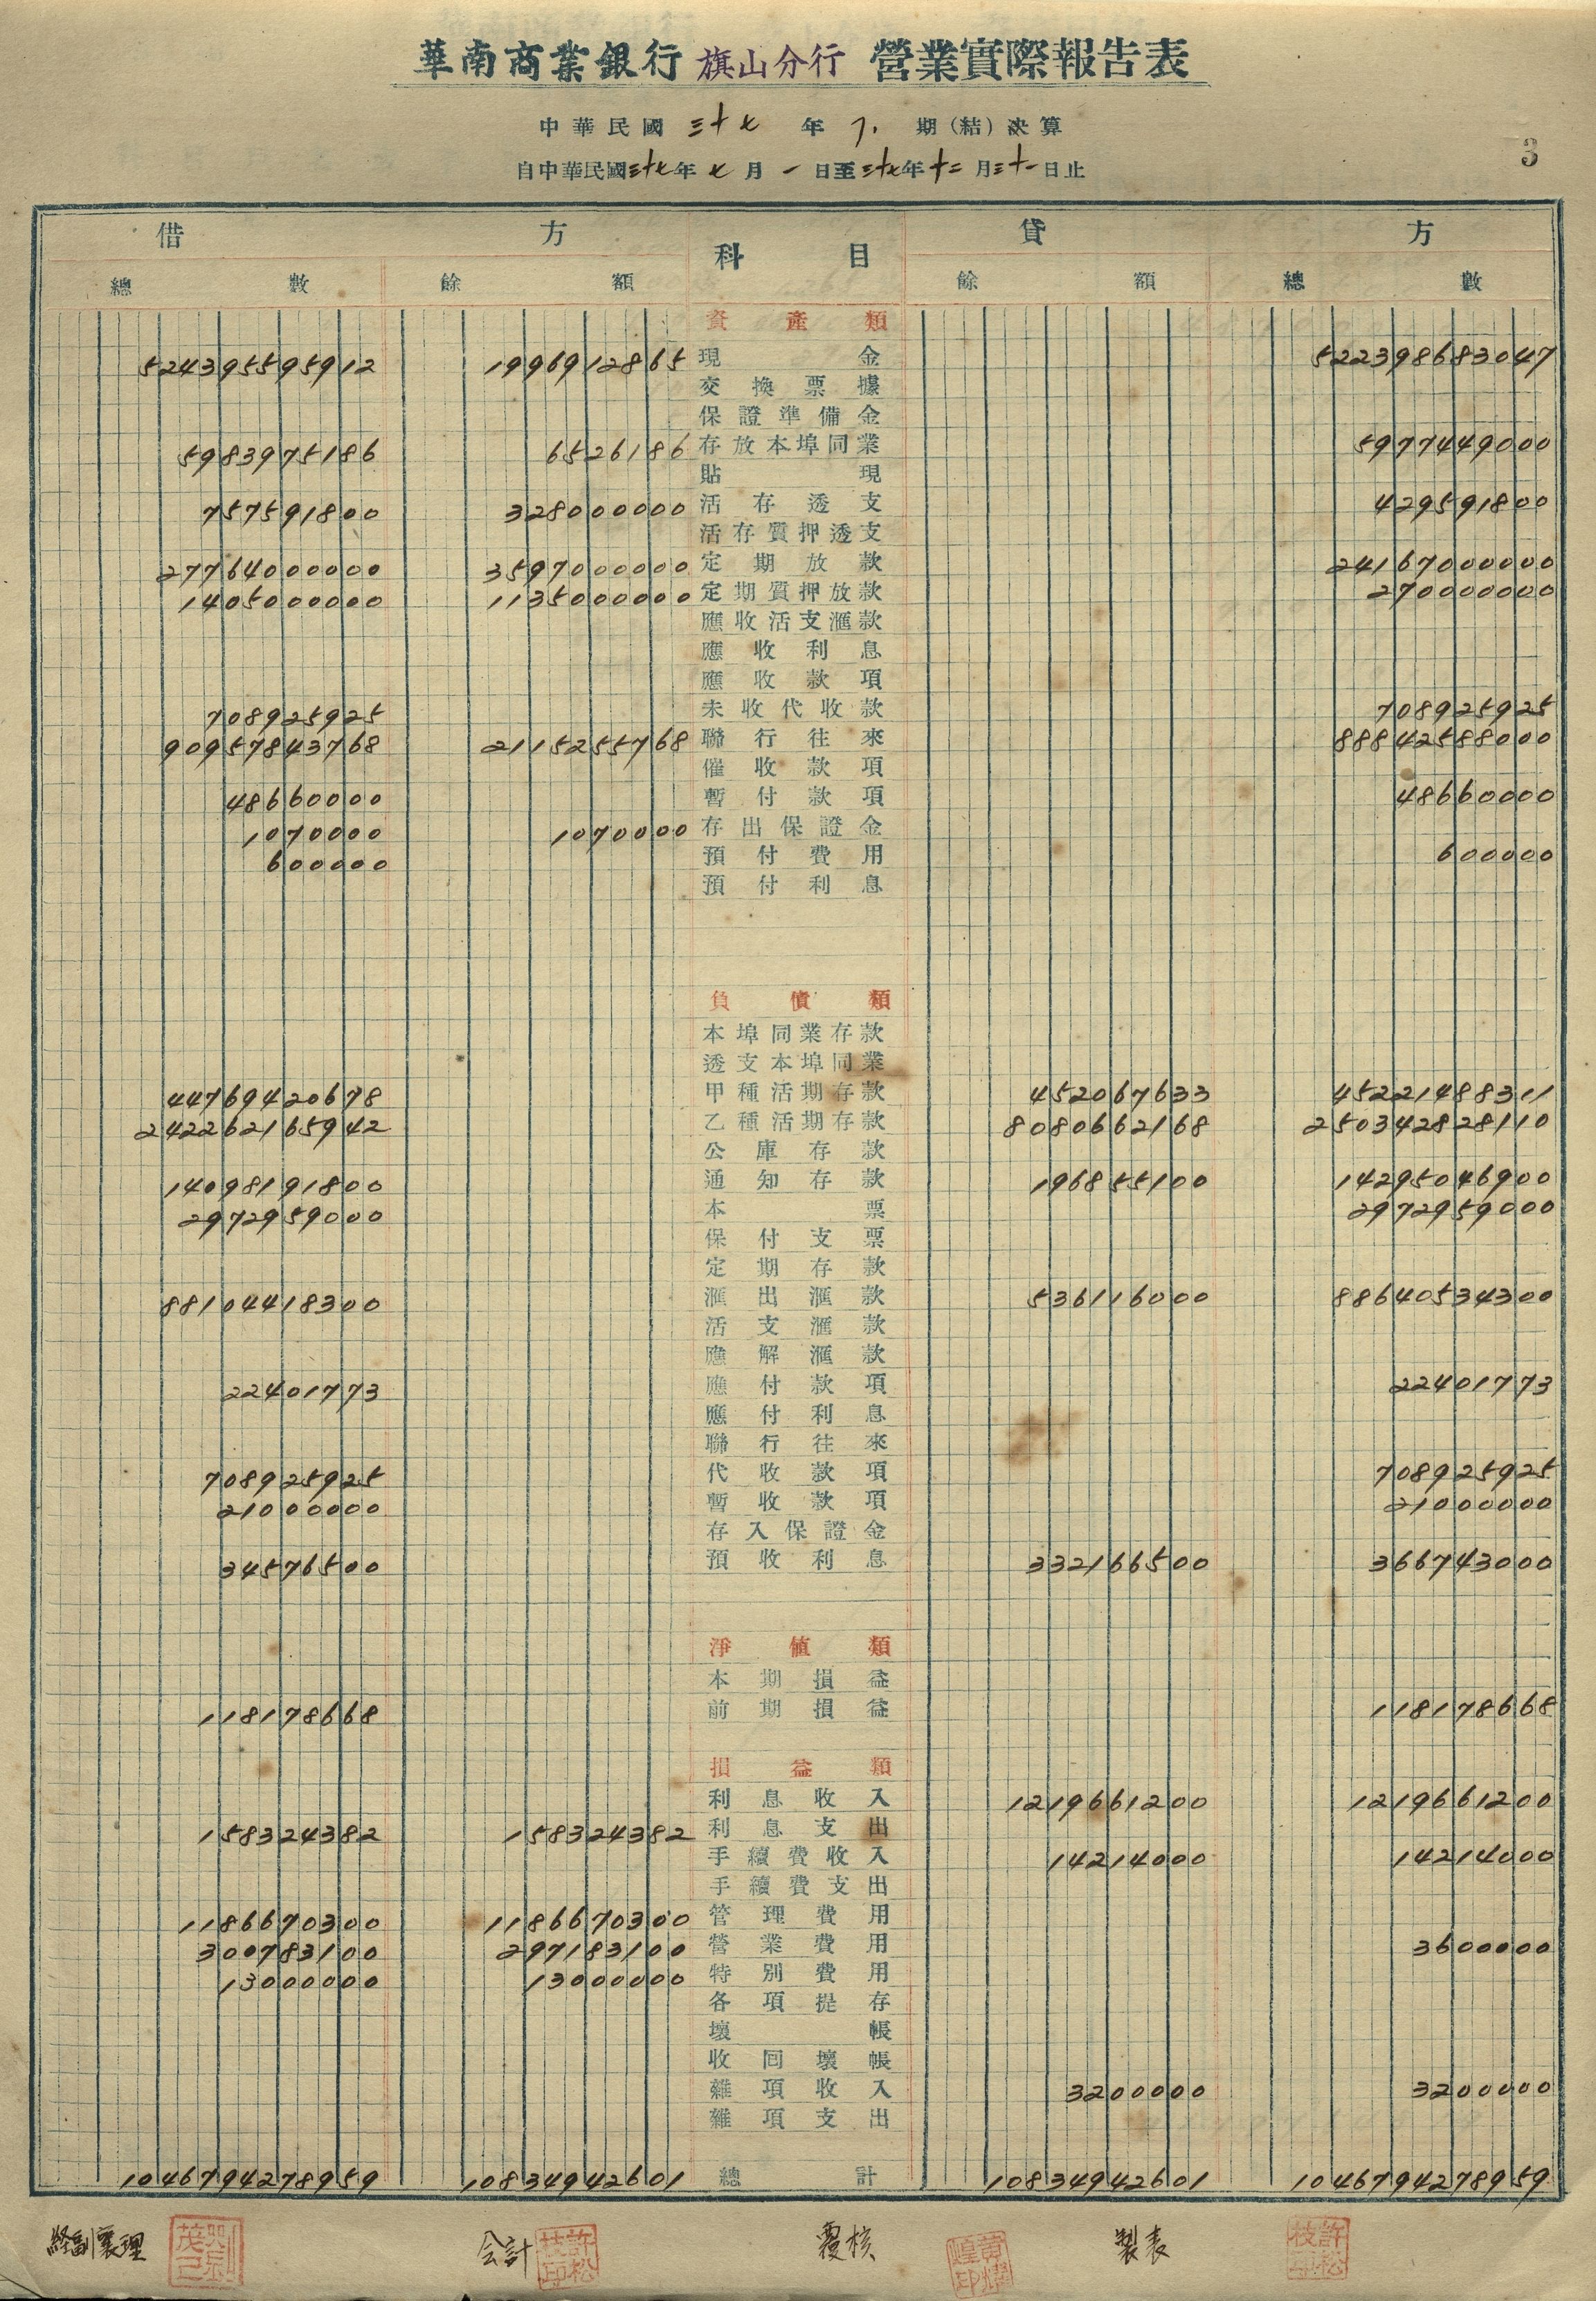 華南商業銀行 旗山分行 營業實際報告表
中華民國 三十七 年 下 期(結)決算
自中華民國三十七年七月一日至三十七年十二月三十一日止
3
借方 科目 貸方
總數 餘額 餘額 總數
資產類
524395595912 1996912865 現金 522398683047
交換票據
保證準備金
5983975186 6526186 存放本埠同業 5977449000
貼現
757591800 328000000 活存透支 429591800
活存質押透支
27764000000 3597000000 定期放款 24167000000
1405000000 1135000000 定期質押放款 270000000
應收活支滙款
應收利息
應收款項
708925925 未收代收款 708925925
90957843768 2115255768 聯行往來 88842588000
催收款項
48660000 暫付款項 48660000
1070000 1070000 存出保證金
600000 預付費用 600000
預付利息
負債類
本埠同業存款
透支本埠同業
44769420678 甲種活期存款 452067633 45221488311
242262165942 乙種活期存款 8080662168 250342828110
公庫存款
14098191800 通知存款 196855100 14295046900
2972959000 本票 2972959000
保付支票
定期存款
88104418300 滙出滙款 536116000 88640534300
活支滙款
應解滙款
22401773 應付款項 22401773
應付利息
聯行往來
708925925 代收款項 708925925
21000000 暫收款項 21000000
存入保證金
34576500 預收利息 332166500 366743000
淨值類
本期損益
118178668 前期損益 118178668
損益類
利息收入 1219661200 1219661200
158324382 158324382 利息支出
手續費收入 14214000 14214000
手續費支出
1186670300 1186670300 管理費用
300783100 297183100 營業費用 3600000
13000000 13000000 特別費用
各項提存
壞帳
收回壞帳
雜項收入 3200000 3200000
雜項支出
1046794278959 10834942601 總計 10834942601 1046794278959
経副襄理 会計 許松枝印 覆核 黃燿煌印 製表 許松枝印